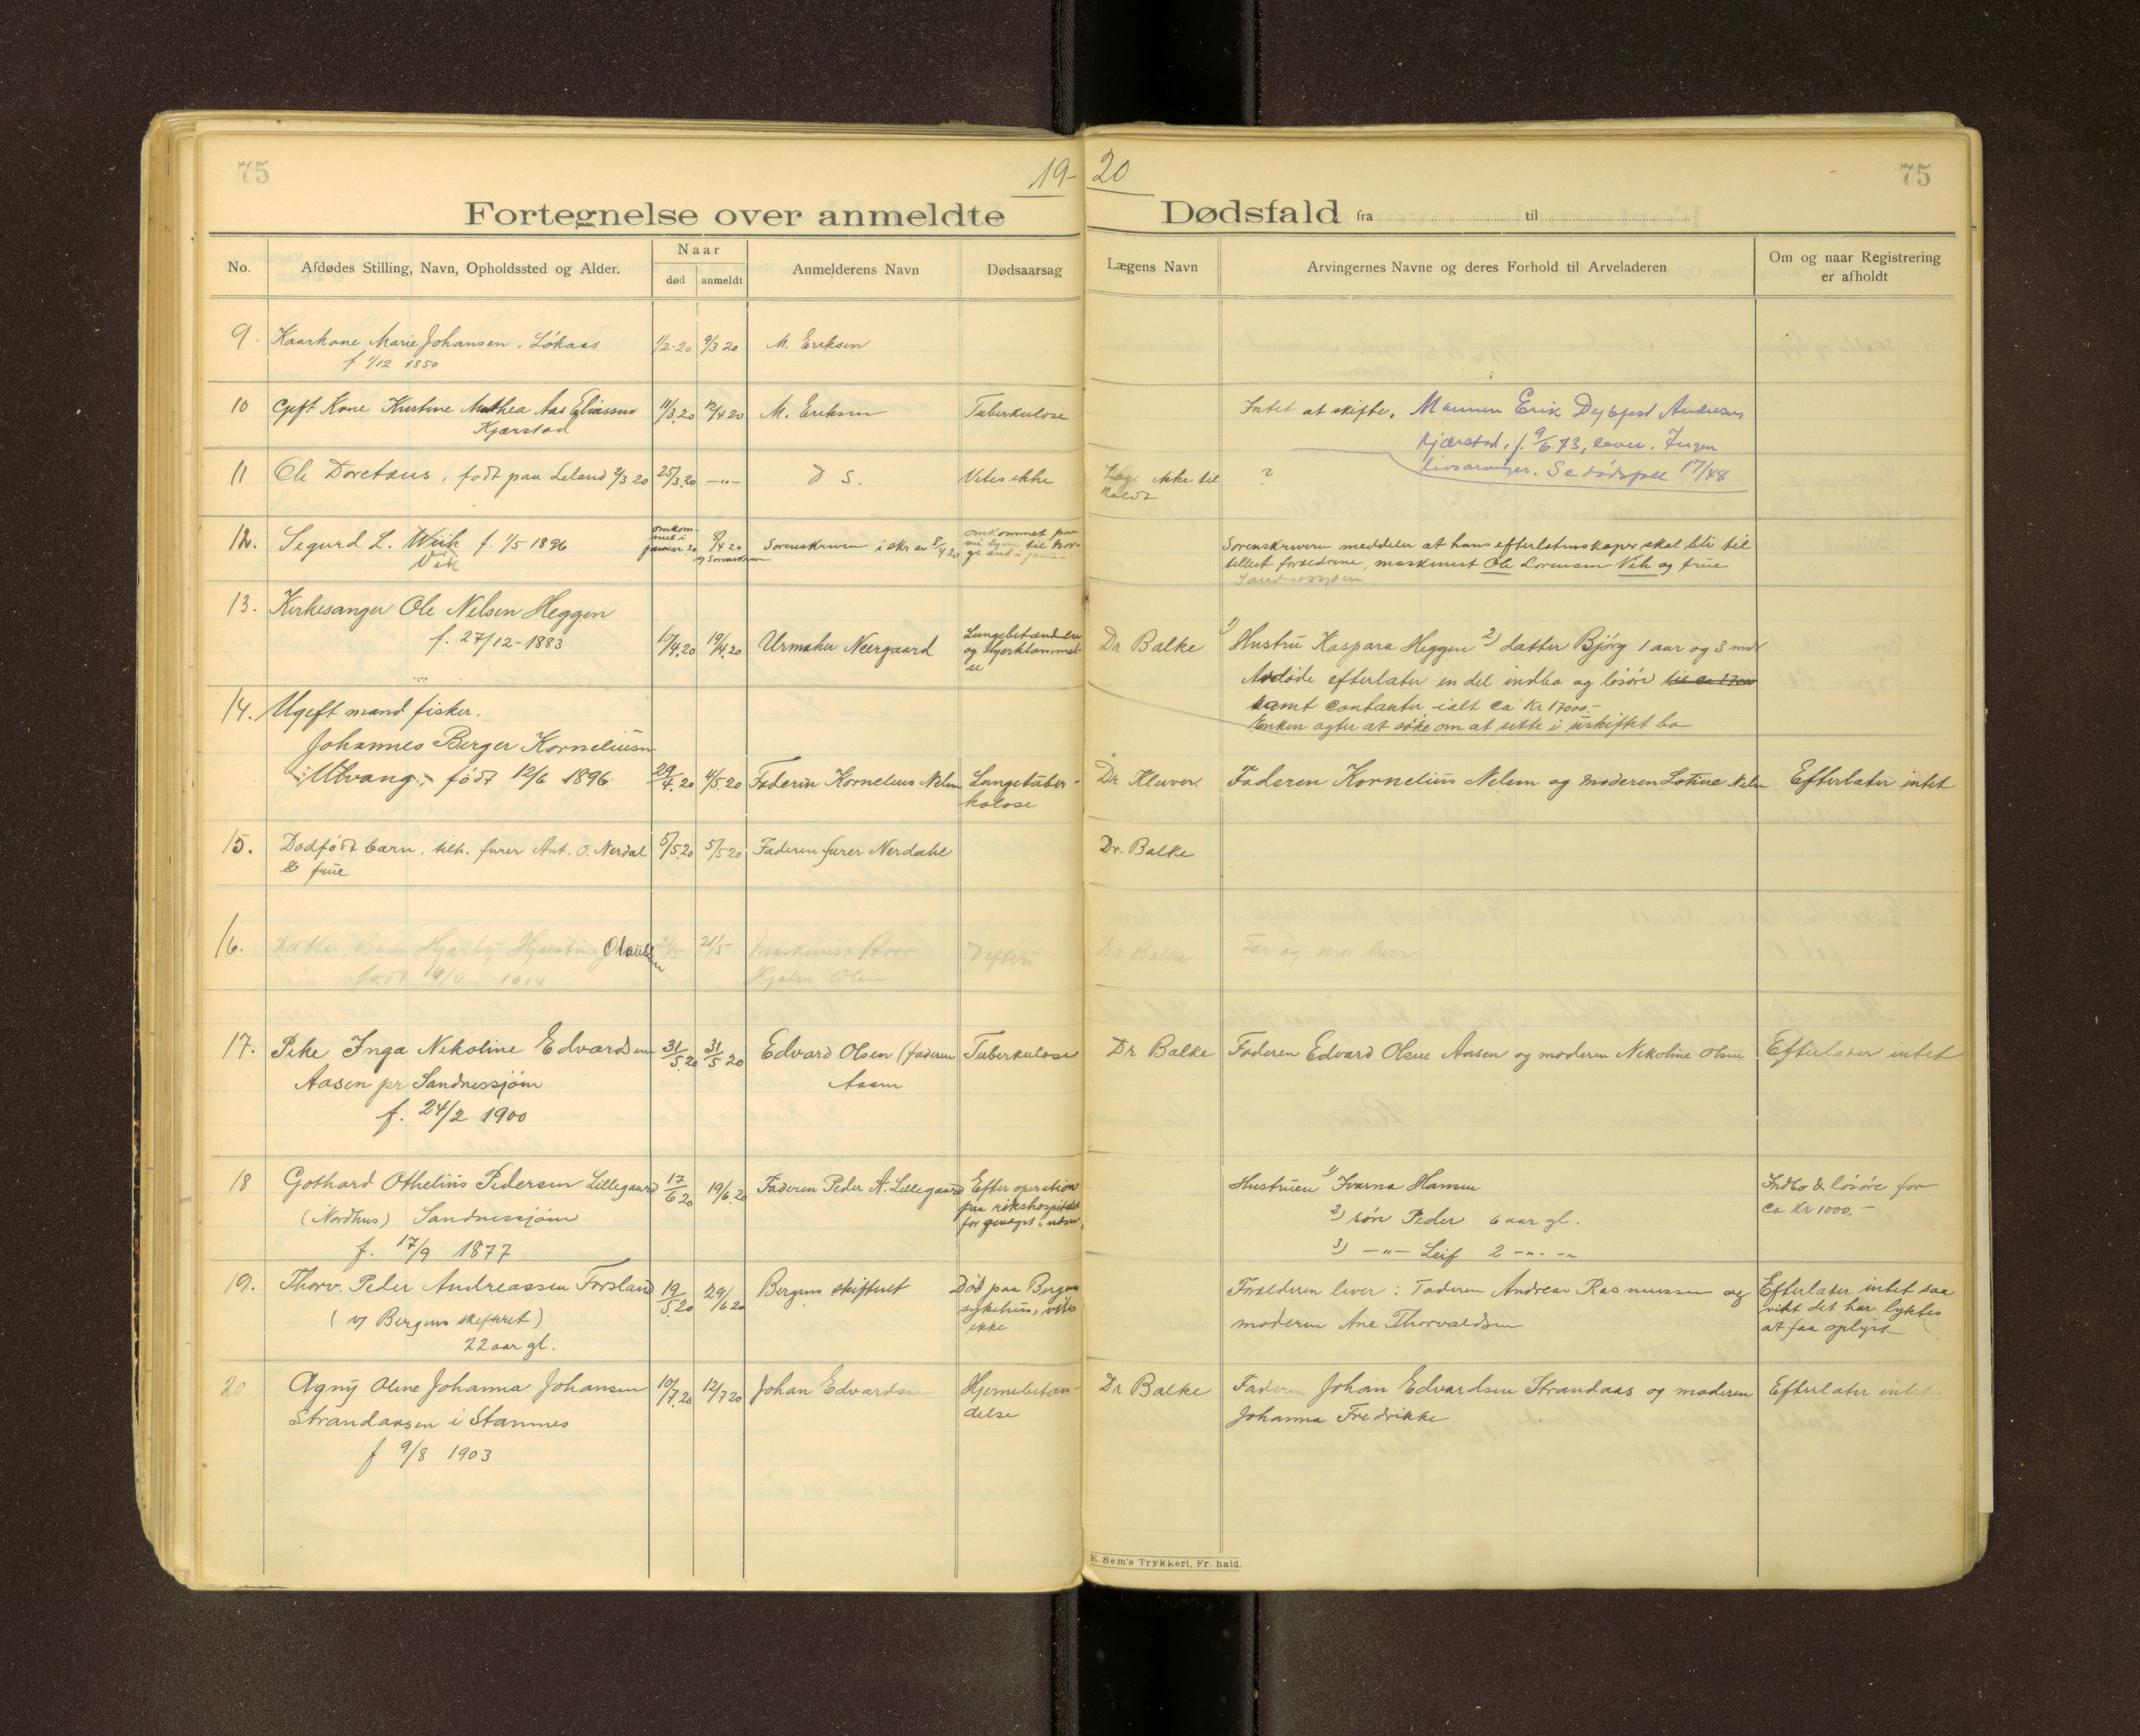 75
19-20
75
Fortegnelse over anmeldte Dødsfald fra til
No.
Afdødes Stilling, Navn, Opholdssted og Alder.
Naar
død
anmeldt
Anmelderens Navn
Dødsaarsag
Lægens Navn
Arvingernes Navne og deres Forhold til Arveladeren
Om og naar Registrering
er afholdt
9. Kaarkone Marie Johansen, Løkaas 1/2-20 9/3 20 M. Eriksen
f 1/12 1850
10 Gift Kone Kristine Mathea Aas Eliassen 11/3.20 12/4 20 M. Eriksen Tuberkulose Intet at skifte. Mannen Erik Andresen
Kjærstad
Kjærstad, f. 9/6 73, lever. Ingen
livsarvinger. Se 17/48
11 Ole Doretius, født paa Leland 2/3 20 25/3.20 -"- D S. Vites ikke ikke til ?
kaldt
12. Sigurd L. Wiik f. 1/5 1896
Vik
omkom-
met i
januar 20
8/4 20
Sorenskriveren i skr av 8/4 20
omkommet paa
til Nor-
Sorenskriveren meddeler at hans efterlatenskaper skal bli til
stillet forældrene, maskinist Ole Lorensen Vik og frue
Sandnessjøen
13. Kirkesanger Ole Nelsen Heggen
f. 27/12-1883 19/4.20 Urmaker Neergaard
Lungebetændelse
og Hjerklammel-
se
Dr Balke 1) Hustru Kaspara Heggen 2) datter Bjørg 1 aar og 3 mdr
Avdøde efterlater en del indbo og løsøre til ca 17000
samt contanter ialt ca Kr 17000.-
Enken agter at søke om at sitte i uskiftet bo
14. Ugift mand fisker.
Johannes Berger Korneliusen
Utvang, født 12/6 1896 29/4.20 4/5.20 Faderen Kornelius Nelsen Lungetuber-
kolose
Dr Kluwer. Faderen Kornelius Nelsen og moderen Lotine Nelsen Efterlater intet
15. Dødfødt barn, tilh. furer Ant. O. Nerdal 5/5.20 5/5 20 Faderen furer Nerdahl Dr. Balke
& frue
16. Olausen 21/5 Difteri Dr Balke Far og mor lever
17. Pike Inga Nikoline Edvardsen 31/5.20 31/5 20 Edvard Olsen (faderen Tuberkulose Dr Balke Faderen Edvard Olsen Aasen og moderen Nikoline Olsen Efterlater intet
Aasen pr Sandnessjøen Aasen
f. 24/2 1900
18 Gothard Othelius Pedersen Lillegaard 17/6 20 19/6.20 Faderen Peder A. Lillegaard Efter operation Hustruen 1) Ivarna Hansen Indbo & løsøre for
(Nordhus) Sandnessjøen paa rikshospitalet 2) søn Peder 6 aar gl. ca Kr 1000.-
f. 17/9 1877 for gevægst i 3) -"- Leif 2 -"- -"-
19. Thorv. Peder Andreassen Forsland 19/5.20 29/6 20 Bergens skifteret Død paa Bergens Forældrene lever: Faderen Andreas Rasmussen og Efterlater intet saa
(v/ Bergens skifteret) sykehus, vites moderen Ane Thorvaldsen vidt det har lyktes
22 aar gl. ikke at faa oplyst
20 Agny Oline Johanna Johansen 10/7.20 12/7 20 Johan Edvardsen Hjernebetæn- Dr Balke Faderen Johan Edvardsen Strandaas og moderen Efterlater intet
Strandaasen i Stamnes delse Johanna Fredrikke
f 9/8 1903
E. Sem's Trykkeri, Fr.hald.